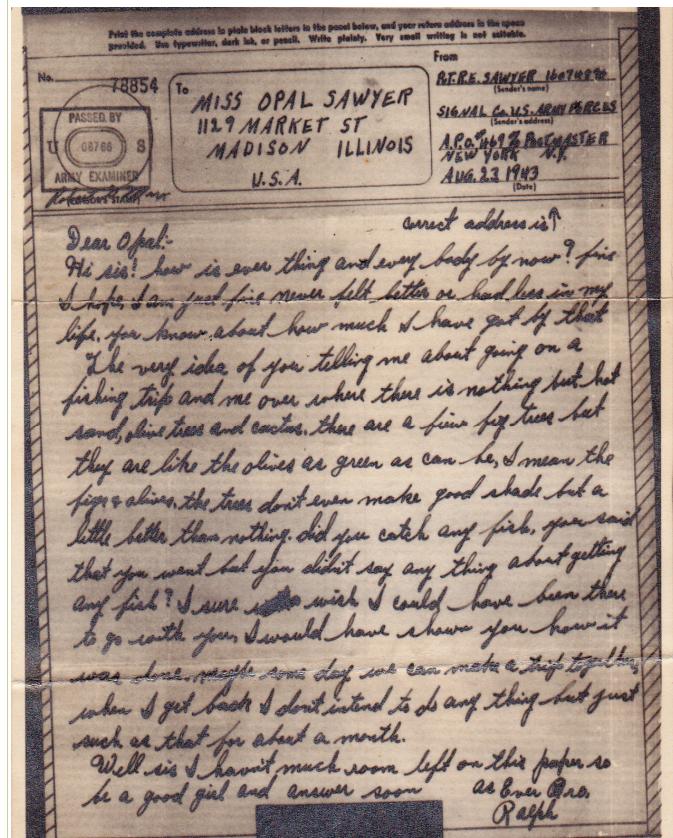 Print the complete address in plain block letters in the panel below, and your return address in the space
provided. Use typewriter, dark ink, or pencil. Write plainly. Very small writing is not suitable.
No.
78854
PASSED BY
U 08766 S
ARMY EXAMINER
To
MISS OPAL SAWYER
1129 MARKET ST
MADISON ILLINOIS
U.S.A.
From
PVT. R.E. SAWYER
(Sender's name)
SIGNAL Co. U.S. ARMY FORCES
(Sender's address)
A.P.O. #469 % POSTMASTER
NEW YORK N.Y.
AUG. 23 1943
(Date)
correct address is ↑
Dear Opal:-
Hi sis! how is ever thing and every body by now? fine
I hope, I am just fine never felt better or had less in my
life, you know about how much I have got by that
The very idea of you telling me about going on a
fishing trip and me over where there is nothing but hot
sand, olive trees and cactus. there are a few fig trees but
they are like the olives as green as can be, I mean the
figs & olives. the trees don't even make good shade but a
little better than nothing. did you catch any fish, you said
that you went but you didn't say any thing about getting
any fish? I sure wish I could have been there
to go with you, I would have shown you how it
was done. maybe some day we can make a trip together,
when I get back I dont intend to do any thing but just
such as that for about a month.
Well sis I havn't much room left on this paper so
be a good girl and answer soon as Ever Bro.
Ralph